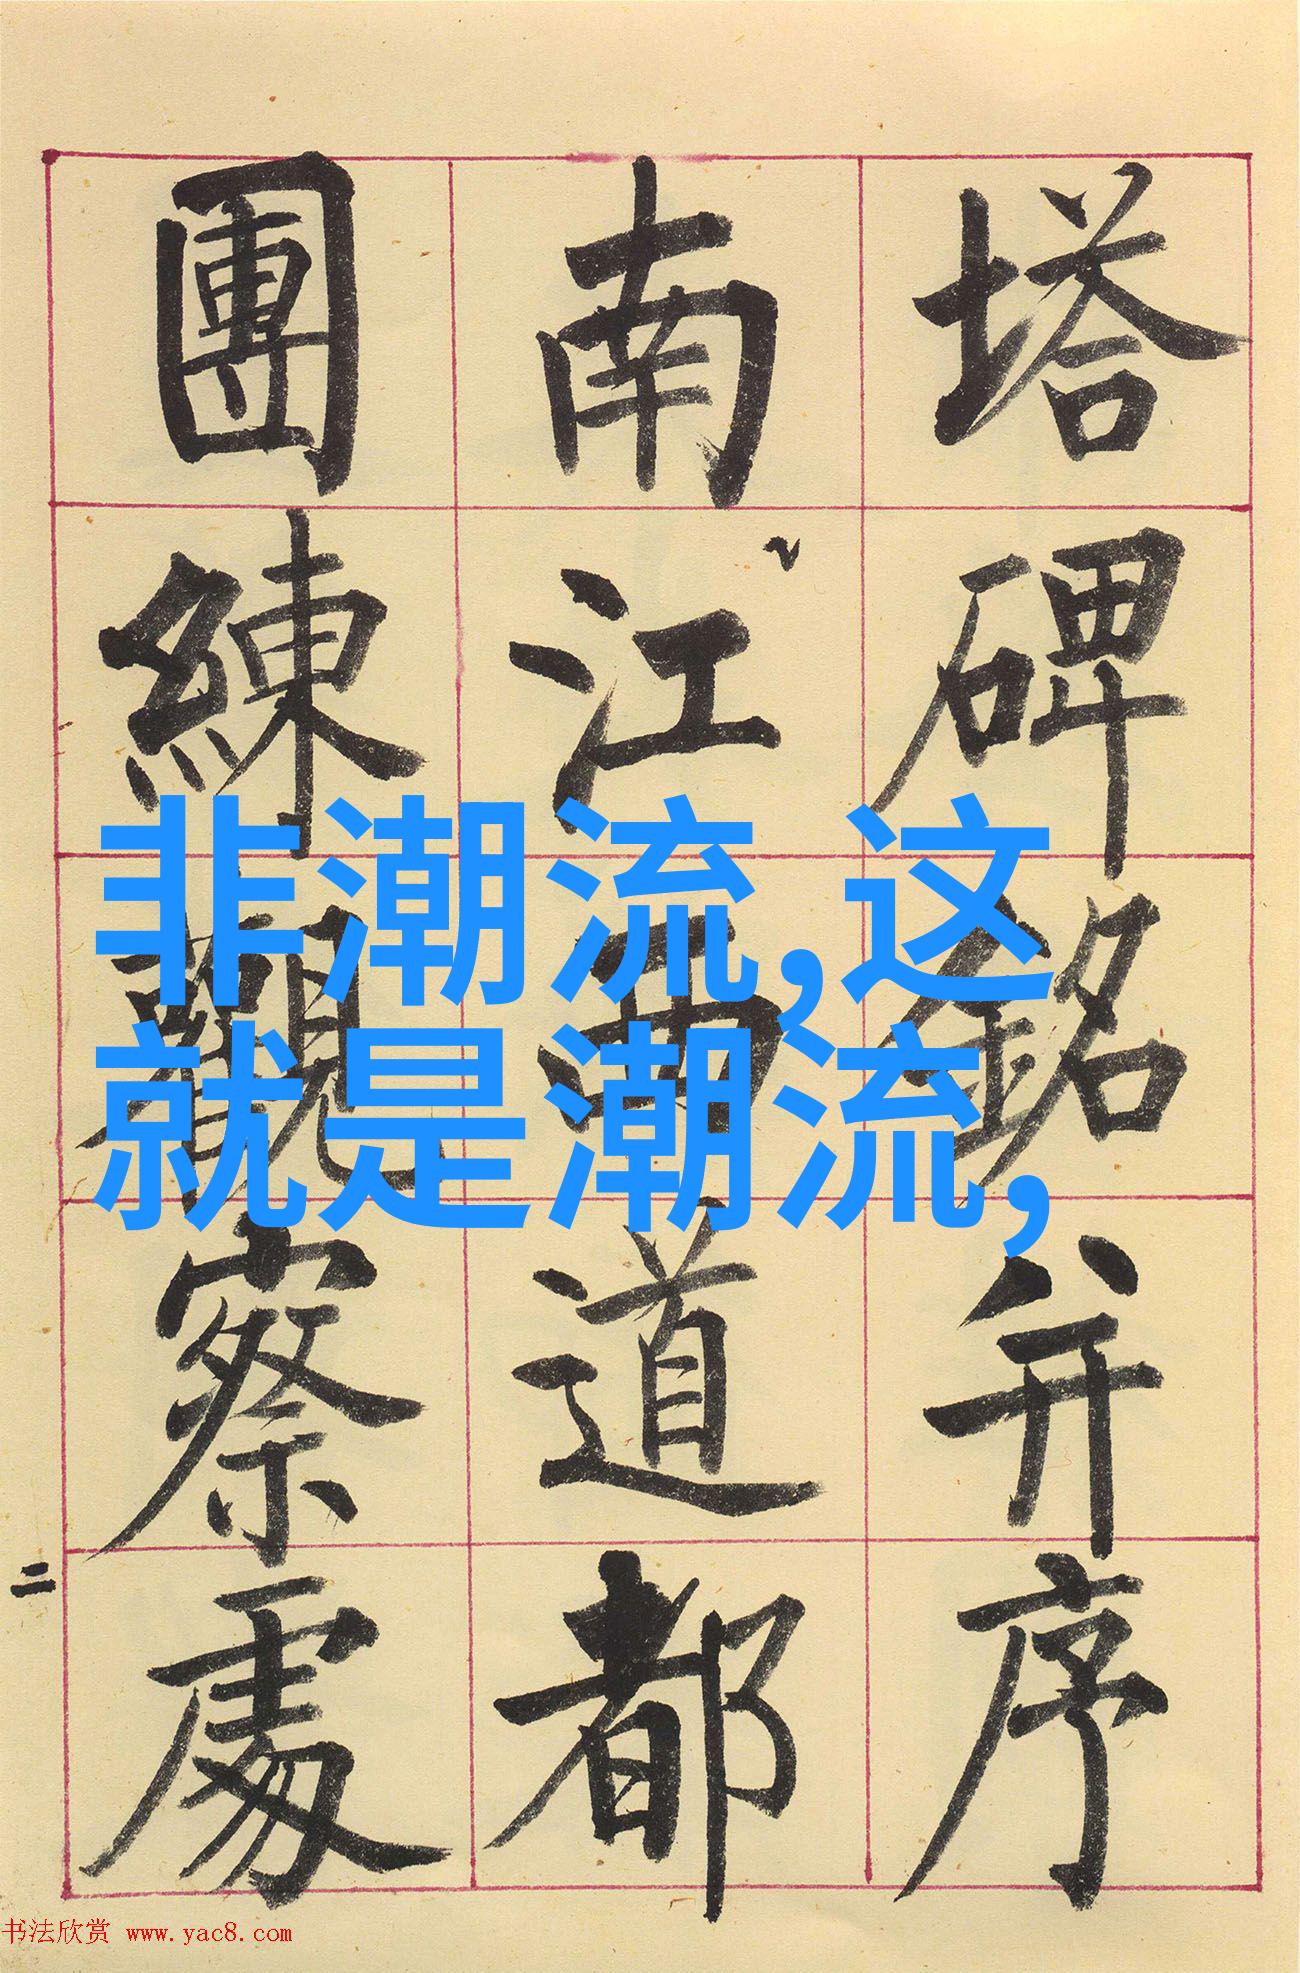 塔碑銘并序
南江西道都
團練觀察處
非潮流,这
就是潮流,
二
书法欣赏 www.yac8.com